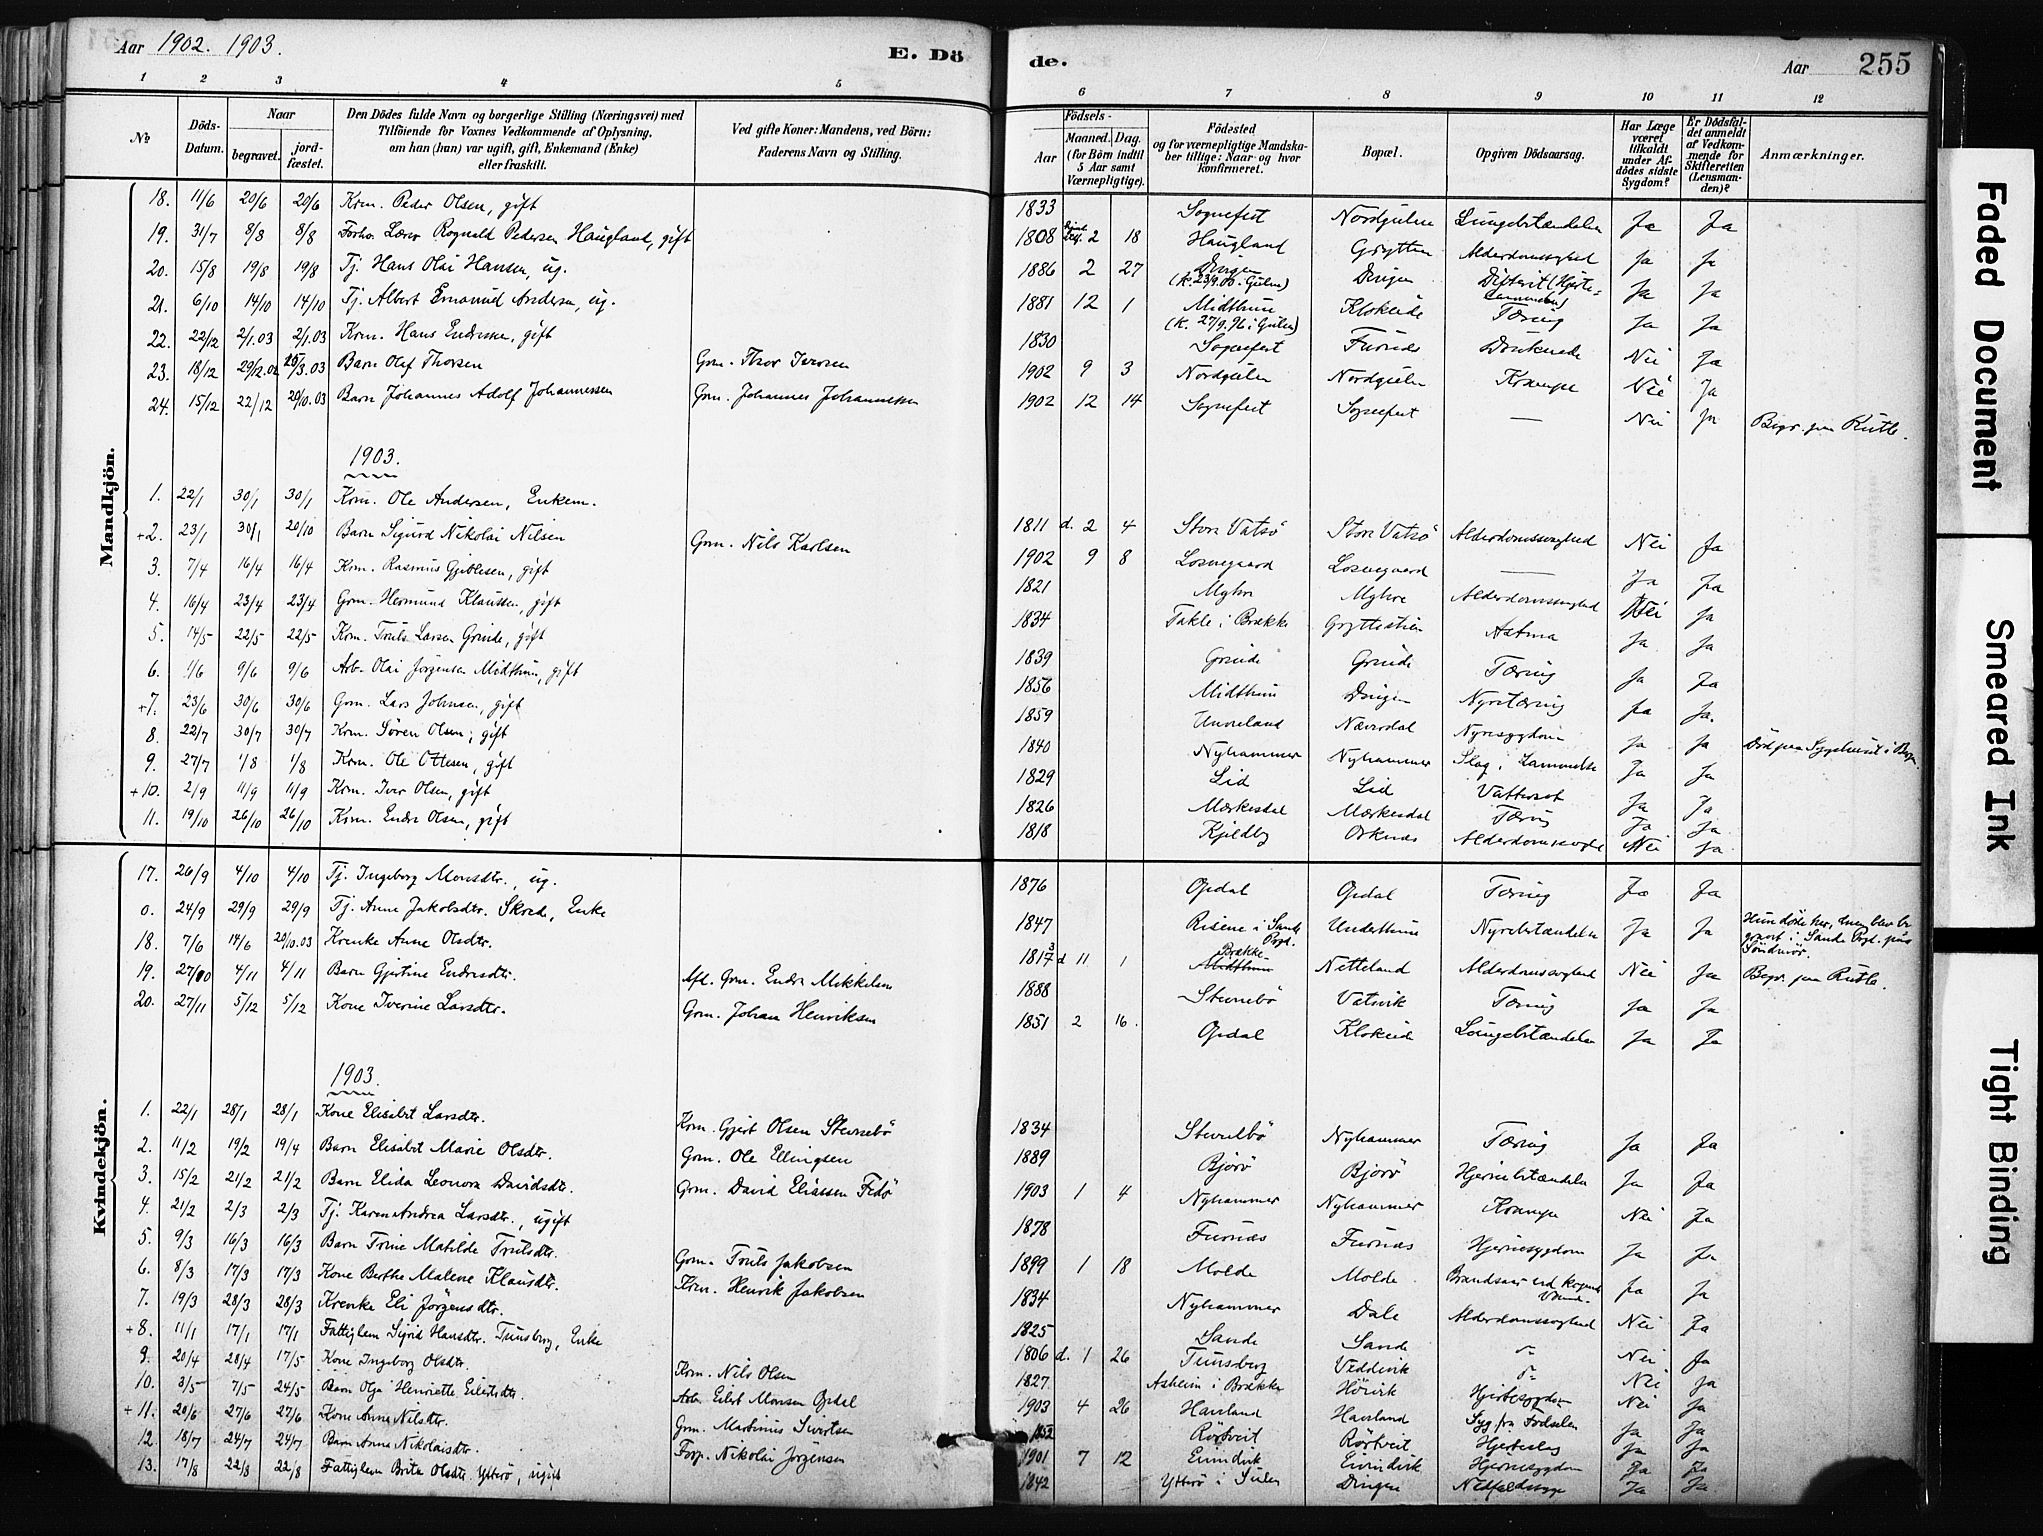 Aar 1902. 1903.
E. Dö
de.
Aar 255
1 2 3 4 5 6 7 8 9 10 11 12
№
Döds-
Datum.
Naar
begravet.
jord-
fæstet.
Den Dödes fulde Navn og borgerlige Stilling (Næringsvei) med
Tilföiende for Voxnes Vedkommende af Oplysning,
om han (hun) var ugift, gift, Enkemand (Enke)
eller fraskilt.
Ved gifte Koner: Mandens, ved Börn:
Faderens Navn og Stilling.
Födsels-
Aar
Maaned. Dag.
(for Börn indtil
5 Aar samt
Værnepligtige).
Födested
og for værnepligtige Mandska-
ber tillige: Naar og hvor
konfirmeret.
Bopæl.
Opgiven Dödsaarsag.
Har Læge
været
tilkaldt
under Af-
dödes sidste
Sygdom?
Er Dödsfal-
det anmeldt
af Vedkom-
mende for
Skifteretten
(Lensman-
den)?
Anmærkninger.
Mandkjön.
18. 11/6 20/6 20/6 Krm. Peder Olsen, gift 1833 Sognefest Nordgulen Lungebetændelse Ja Ja
19. 31/7 8/8 8/8 Forhv. Lærer Rognald Pedersen Haugland, gift 1808 2 18 Haugland Grytten Alderdomssvaghed Ja Ja
20. 15/8 19/8 19/8 Tj. Hans Olai Hansen, ug. 1886 2 27 Dingen (k. 23/9.00 i Gulen) Dingen Difterit (Hjerte- Ja Ja
21. 6/10 14/10 14/10 Tj. Albert Emanuel Andersen, ug. 1881 12 1 Midthun (k. 27/9.96 i Gulen) Klokeide Tæring Ja Ja
22. 22/12 2/1.03 2/1.03 Krm. Hans Endresen, gift 1830 Sognefest Furnæs Druknede Nei Ja
23. 18/12 29/12.02 /3.03 Barn Olaf Thorsen Grm. Thor Iversen 1902 9 3 Nordgulen Nordgulen Krampe Nei Ja
24. 15/12 22/12 20/10.03 Barn Johannes Adolf Johannessen Grm. Johannes Johannessen 1902 12 14 Sognefest Sognefest — Nei Ja Begr. paa Rutle.
1903.
1. 22/1 30/1 30/1 Krm. Ole Andersen, Enkem. 1811 d. 2 4 Store Vatsö Store Vatsö Alderdomssvaghed Nei Ja
+2. 23/1 30/1 20/10 Barn Sigurd Nikolai Nilsen Grm. Nils Karlsen 1902 9 8 Losnegaard Losnegaard — Ja Ja
3. 7/4 16/4 16/4 Krm. Rasmus Gjeblesen, gift 1821 Myhre Myhre Alderdomssvaghed Nei Ja
4. 16/4 23/4 23/4 Grm. Hermund Klaussen, gift 1834 Takle i Brække Gryttestien Astma Ja Ja
5. 14/5 22/5 22/5 Krm. Truls Larsen Grinde, gift 1839 Grinde Grinde Tæring Ja Ja
6. 1/6 9/6 9/6 Arb. Olai Jørgensen Midthun, gift 1856 Midthun Dingen Nyretæring Ja Ja.
+7. 23/6 30/6 30/6 Grm. Lars Johnsen, gift 1859 Unneland Nævrdal Nyresygdom Ja Ja Död paa Sygehuset i Bergen.
8. 22/7 30/7 30/7 Krm. Sören Olsen, gift 1840 Nyhammer Nyhammer Slag, Lammelse Ja Ja
9. 27/7 1/8 1/8 Krm. Ole Ottesen, gift 1829 Lid Lid Vattersot Ja Ja
+10. 2/9 11/9 11/9 Krm. Iver Olsen, gift 1826 Mærkesdal Mærkesdal Tæring Ja Ja
11. 19/10 26/10 26/10 Krm. Endre Olsen, gift 1818 Kjellby Oknæs Alderdomssvaghed Nei Ja
Kvindekjön.
17. 26/9 4/10 4/10 Tj. Ingeborg Monsdtr., ug. 1876 Opdal Opdal Tæring Ja Ja
0. 24/9 29/9 29/9 Tj. Anne Jakobsdtr. Skrede, Enke 1847 Risene i Sande Prgd. Underthun Nyrebetændelse Ja Ja Hun döde her, men blev begravet i Sande Prgd. paa Söndmör.
18. 7/6 14/6 20/10.03 Krenke Anne Olsdtr. 1817 d 11 1 Brække Netteland Alderdomssvaghed Nei Ja Begr. paa Rutle.
19. 27/10 4/11 4/11 Barn Gjertine Endresdtr. Afd. Grm. Endre Mikkelsen 1888 Stevnebö Vatsvik Tæring Ja Ja
20. 27/11 5/12 5/12 Kone Iverine Larsdtr. Grm. Johan Henriksen 1851 2 16. Opdal Klokeide Lungebetændelse Ja Ja
1903.
1. 22/1 28/1 28/1 Kone Elisabet Larsdtr. Krm. Gjert Olsen Stevnebö 1834 Stevnebö Nyhammer Tæring Ja Ja
2. 11/2 19/2 19/4 Barn Elisabet Marie Olsdtr. Grm. Ole Ellingsen 1889 Björö Björö Hjernebetændelse Ja Ja
3. 15/2 21/2 21/2 Barn Elida Leonora Davidsdtr. Grm. David Eliassen Fedö 1903 1 4 Nyhammer Nyhammer Krampe Nei Ja
4. 21/2 2/3 2/3 Tj. Karen Andrea Larsdtr., ugift 1878 Furnæs Furnæs Hjernesygdom Ja Ja
5. 9/3 16/3 16/3 Barn Trine Matilde Trulsdtr. Grm. Truls Jakobsen 1899 1 18 Molde Molde Brandsaar ved kogende Vand. Ja Ja
6. 8/3 17/3 17/3 Kone Berthe Malene Klausdtr. Krm. Henrik Jakobsen 1834 Nyhammer Dale Alderdomssvaghed Nei Ja
7. 19/3 28/3 28/3 Krenke Eli Jörgensdtr. 1825 Sande Sande Nei Ja
+8. 11/1 17/1 17/1 Fattiglem Sigrid Hansdtr. Tunsberg, Enke 1806 d. 1 26 Tunsberg Veddevik Nei Ja
9. 20/4 28/4 17/5 Kone Ingeborg Olsdtr. Krm. Nils Olsen 1827 Asheim i Brække Hörvik Hjertesygdom Nei Ja
10. 3/5 7/5 24/5 Barn Olga Henriette Eilertsdtr. Arb. Eilert Monsen Opdal 1903 4 26 Havland Havland Syg fra Födselen Ja Ja
+11. 20/6 27/6 27/6 Kone Anne Nilsdtr. Grm. Martinus Sivertsen 1852 Rörtveit Rörtveit Hjerteslag Ja Ja
12. 18/7 24/7 24/7 Barn Anna Nikolaisdtr. Forp. Nikolai Jörgensen 1901 7 12 Eivindvik Eivindvik Hjernesygdom Ja Ja
13. 17/8 22/8 22/8 Fattiglem Brita Olsdtr. Ytterö, ugift 1842 Ytterö i Sulen Dingen Nedfaldssyge Ja Ja
Faded Document
Smeared Ink
Tight Binding